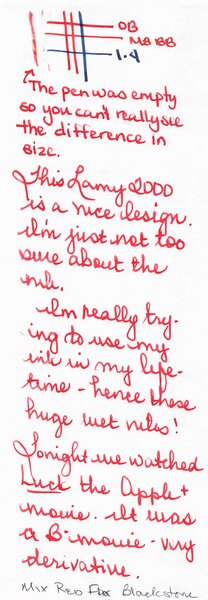 OB
MB BB
1.4
The pen was empty
so you can't really see
the difference in
size.
This Lamy 2000
is a nice design.
I'm just not too
sure about the
nib.
I'm really try-
ing to use my
ink in my life-
time - hence these
huge wet nibs!
Tonight we watched
Luck the Apple+
movie. It was
a B-movie - very
derivative.
Mix Red Blackstone